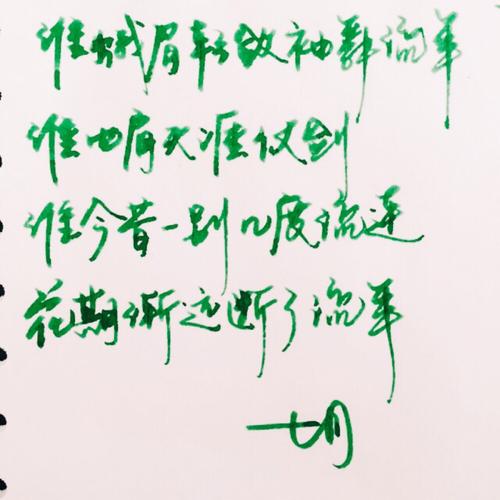 谁蛾眉轻敛袖舞流年
谁比肩天涯仗剑
谁今昔一别几度流连
花期渐远断了流年
七月